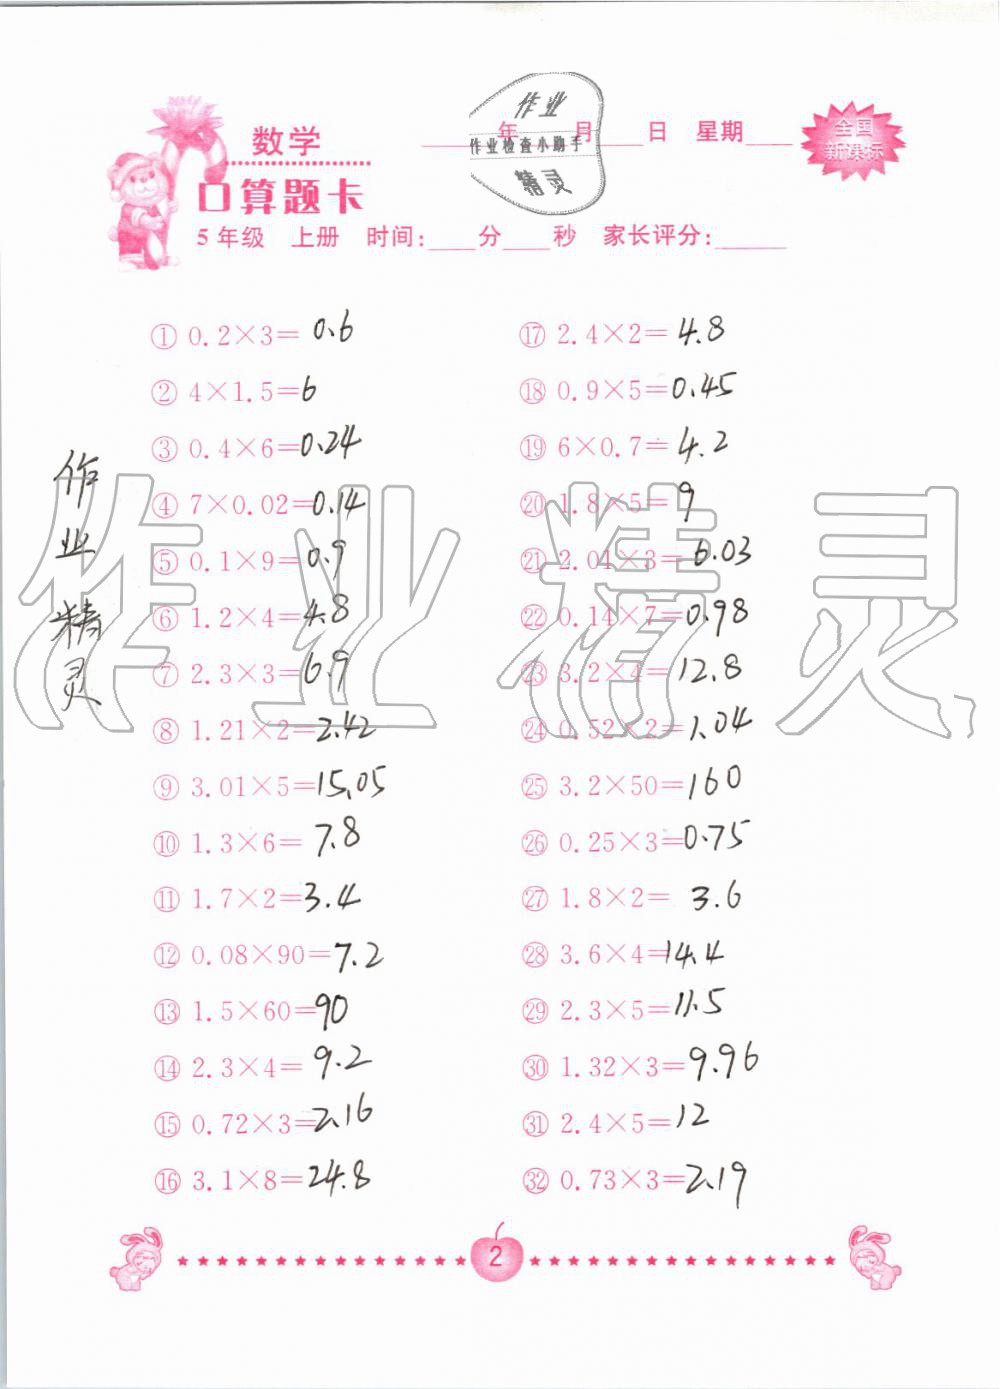 数学
口算题卡
年 月 日 星期
全国
新课标
作业
作业检查小助手
精灵
5年级 上册 时间: 分 秒 家长评分:
① 0.2×3= 0.6
② 4×1.5=6
③ 0.4×6=0.24
④ 7×0.02=0.14
⑤ 0.1×9=0.9
⑥ 1.2×4=4.8
⑦ 2.3×3=6.9
⑧ 1.21×2=2.42
⑨ 3.01×5=15.05
⑩ 1.3×6= 7.8
⑪ 1.7×2=3.4
⑫ 0.08×90=7.2
⑬ 1.5×60=90
⑭ 2.3×4= 9.2
⑮ 0.72×3=2.16
⑯ 3.1×8=24.8
⑰ 2.4×2=4.8
⑱ 0.9×5=0.45
⑲ 6×0.7=4.2
⑳ 1.8×5=9
㉑ 2.01×3=6.03
㉒ 0.14×7=0.98
㉓ 3.2×4=12.8
㉔ 0.52×2=1.04
㉕ 3.2×50=160
㉖ 0.25×3=0.75
㉗ 1.8×2= 3.6
㉘ 3.6×4=14.4
㉙ 2.3×5=11.5
㉚ 1.32×3=9.96
㉛ 2.4×5=12
㉜ 0.73×3=2.19
作业精灵
作业精灵
2